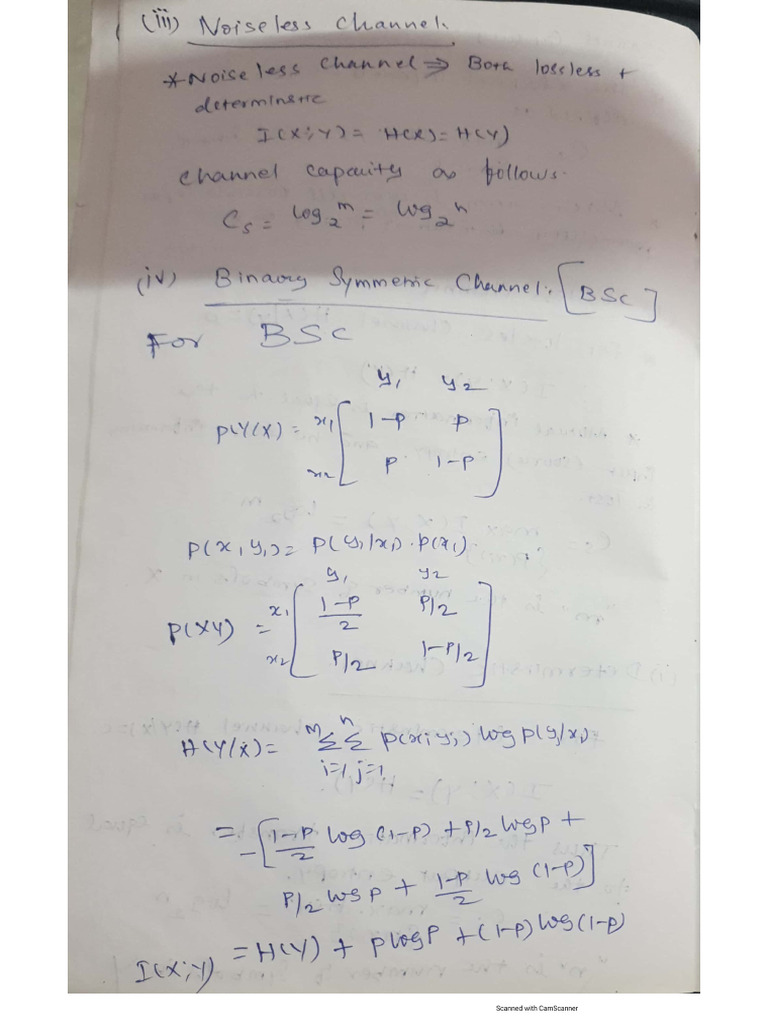 (iii) Noiseless Channel.
* Noiseless Channel ⇒ Both lossless +
deterministic
I(X;Y) = H(X) = H(Y)
Channel capacity as follows.
Cs = log₂m = log₂n
(iv) Binary Symmetric Channel: [BSC]
For BSC
y1 y2
P(Y/X) = x1 [ 1-P P
x2 P 1-P ]
P(x1y1) = P(y1/x1) · P(x1)
y1 y2
P(XY) = x1 [ 1-P/2 P/2
x2 P/2 1-P/2 ]
H(Y/X) = m∑i=1 n∑j=1 P(xi yj) log P(yj/xi)
= -[ 1-P/2 log (1-P) + P/2 log P +
P/2 log P + 1-P/2 log (1-P) ]
I(X;Y) = H(Y) + P log P + (1-P) log (1-P)
Scanned with CamScanner